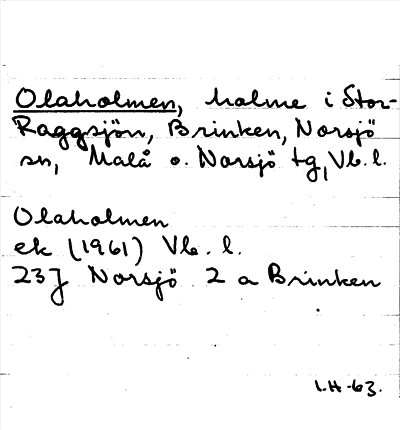 Olaholmen, holme i Stor-
Raggsjön, Brinken, Norsjö
sn, Malå o. Norsjö tg, Vb. l.
Olaholmen
ek (1961) Vb. l.
23J Norsjö 2 a Brinken
I.H-63.